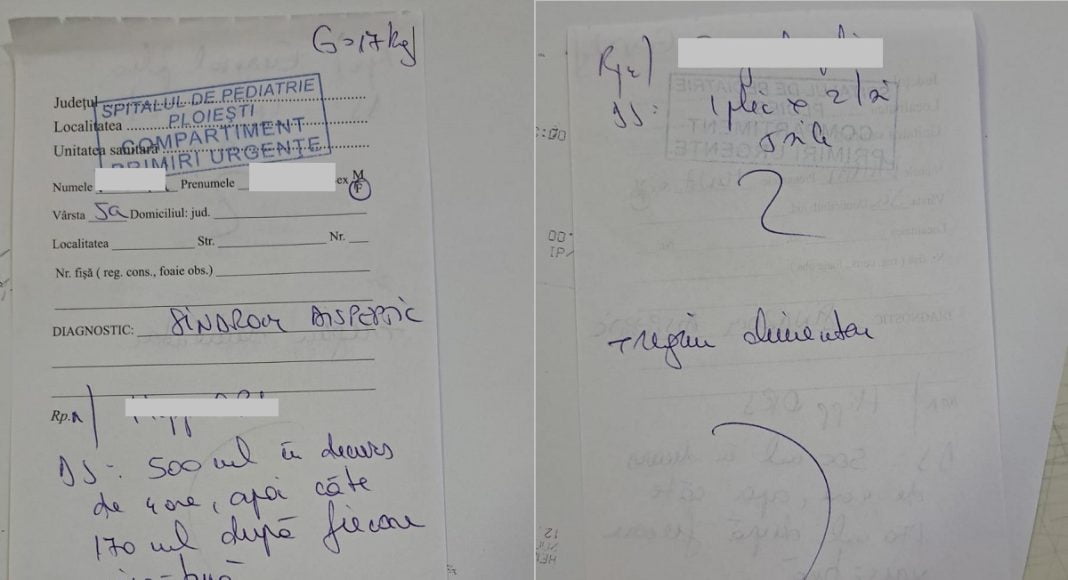 G=17kg
Județul
SPITALUL DE PEDIATRIE
PLOIEȘTI
COMPARTIMENT
PRIMIRI URGENȚE
Localitatea
Unitatea sanitară
Numele Prenumele ex M
F
Vârsta 5a Domiciliul: jud.
Localitatea Str. Nr.
Nr. fișă ( reg. cons., foaie obs.)
DIAGNOSTIC: SINDROM DISPEPTIC
Rp.
DS: 500 ml în decurs
de 4 ore, apoi câte
170 ml după fiecare
DS: 1 plic x 2/zi
5 zile
- regim alimentar